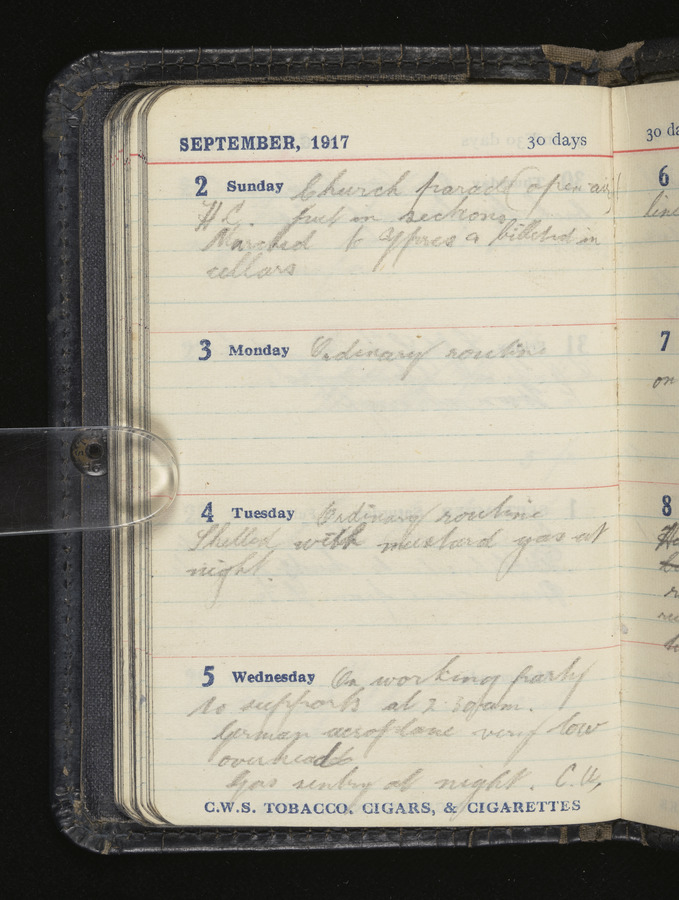 SEPTEMBER, 1917 30 days
2 Sunday Church parade (open air)
H.C. Put in sections.
Marched to Ypres & billeted in
cellars
3 Monday Ordinary routine
4 Tuesday Ordinary routine
Shelled with mustard gas at
night.
5 Wednesday On working party
to supports at 2.30am.
German aeroplane very low
overhead
Gas sentry at night.
C.W.S. TOBACCO, CIGARS, & CIGARETTES
30 da
6
line
7
on
8